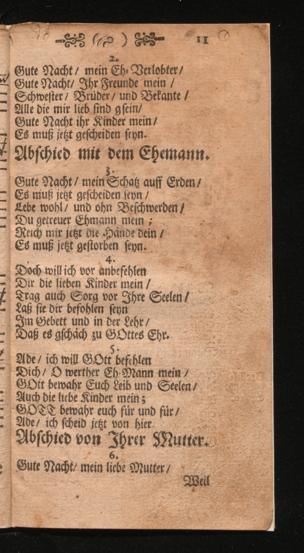 11
2.
Gute Nacht/ mein Eh-Verlobter/
Gute Nacht/ Ihr Freunde mein/
Schwester/ Brüder/ und Bekante/
Alle die mir lieb sind gsein/
Gute Nacht ihr Kinder mein/
Es muß jetzt gescheiden seyn.
Abschied mit dem Ehemann.
3.
Gute Nacht/ mein Schatz auff Erden/
Es muß jetzt gescheiden seyn/
Lebe wohl/ und ohn Beschwerden/
Du getreuer Ehmann mein;
Reich mir jetzt die Hände dein/
Es muß jetzt gestorben seyn.
4.
Doch will ich vor anbefehlen
Dir die lieben Kinder mein/
Trag auch Sorg vor Ihre Seelen/
Laß sie dir befohlen seyn
Im Gebett und in der Lehr/
Daß es gschäch zu GOttes Ehr.
5.
Ade/ ich will GOtt befehlen
Dich/ O werther Eh-Mann mein/
GOtt bewahr Euch Leib und Seelen/
Auch die liebe Kinder mein;
GOTT bewahr euch für und für/
Ade/ ich scheid jetzt von hier.
Abschied von Ihrer Mutter.
6.
Gute Nacht/ mein liebe Mutter/
Weil